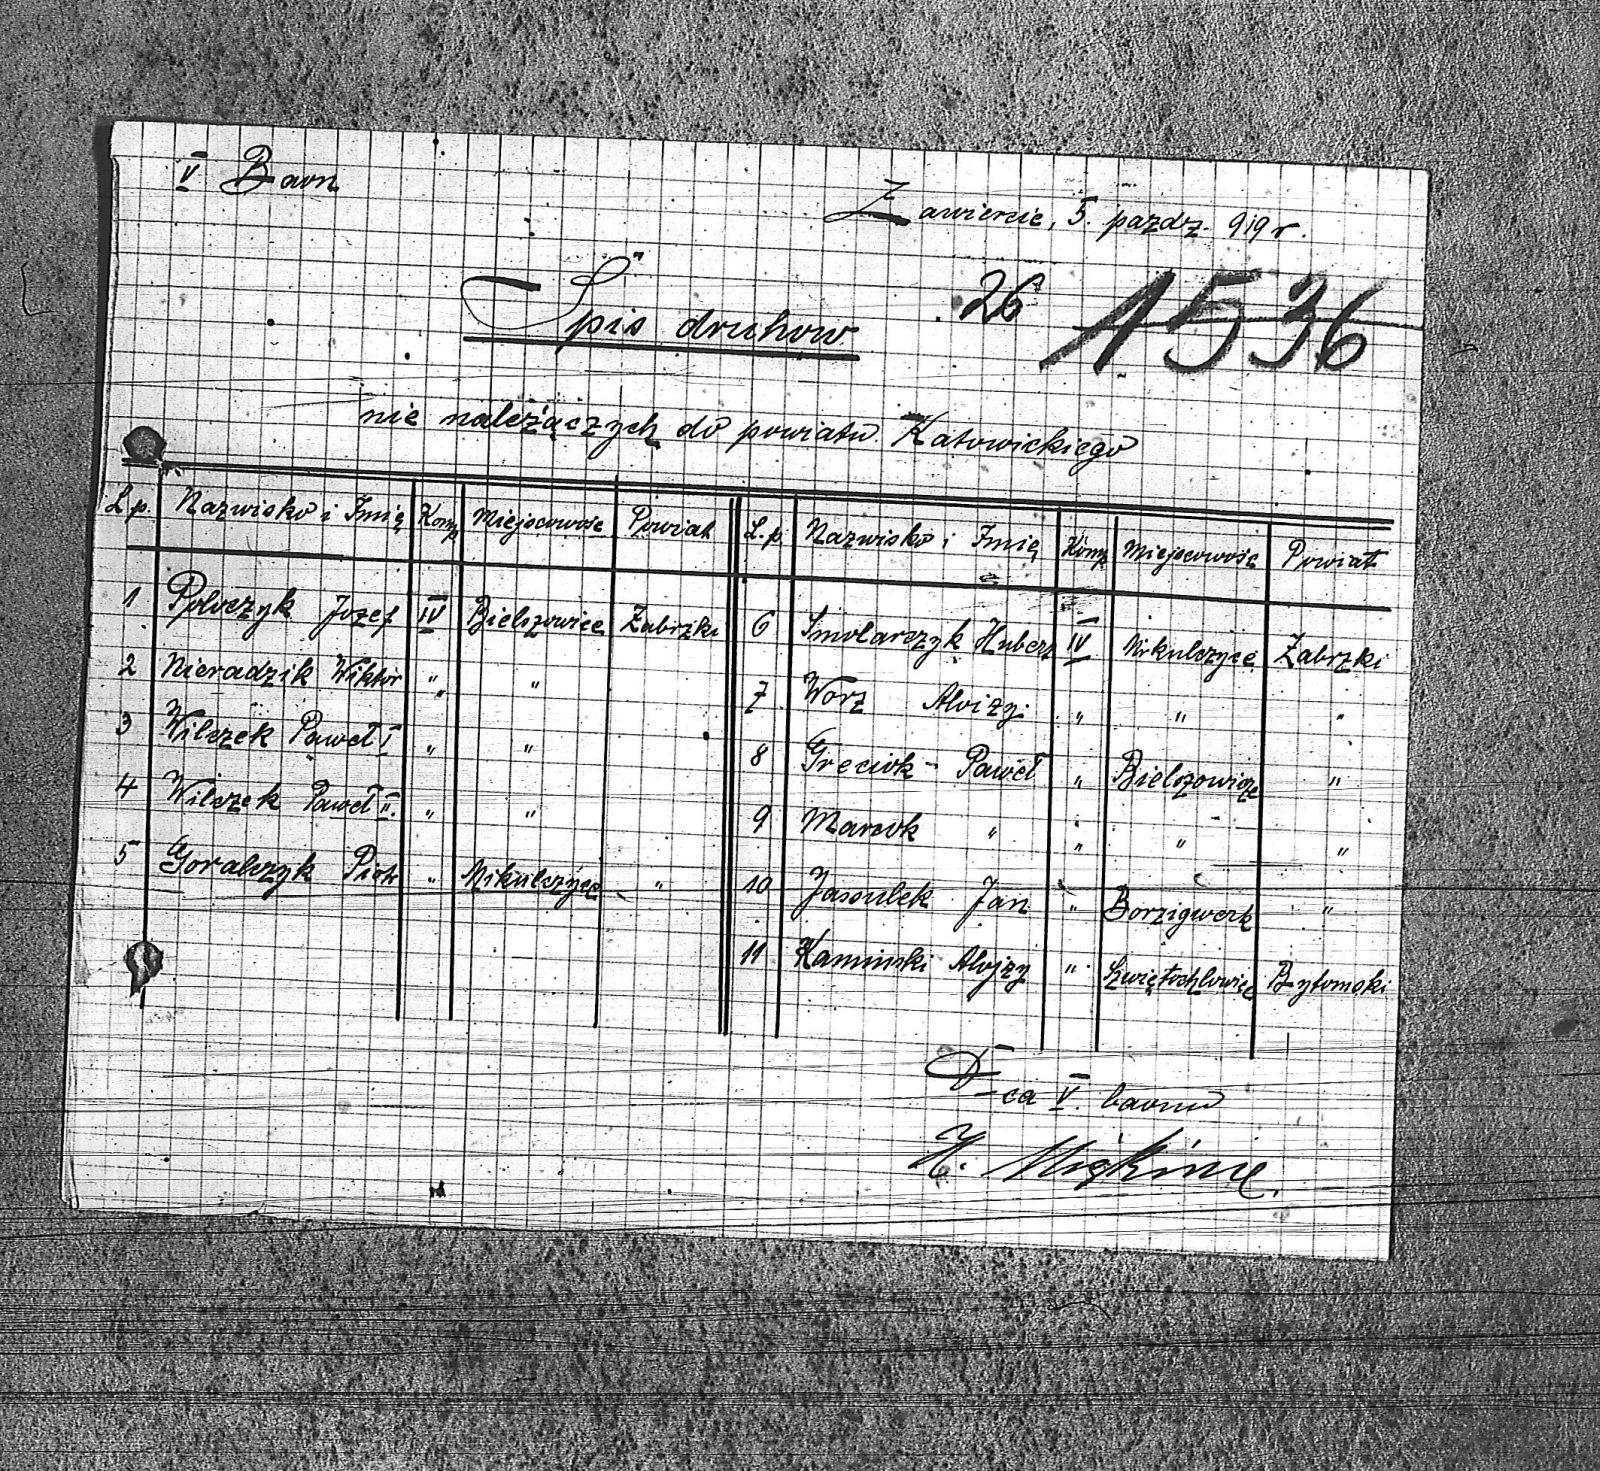 V Baon
Zawiercie, 5. pazdz. 919 r.
Spis druhow
26 1536
nie należących do powiatu Katowickiego
L.p. Nazwisko i Imię Komp Miejscowość Powiat L.p. Nazwisko i Imię Komp Miejscowość Powiat
1 Poloczyk Jozef IV Bielszowice Zabrzki 6 Smolarczyk Hubert IV Mikulczyce Zabrzki
2 Nieradzik Wiktor " " 7 Worz Aloizy " " "
3 Wilczek Paweł I " " 8 Greciok Paweł " Bielszowice "
4 Wilczek Paweł II. " " 9 Marcok " " " "
5 Goralczyk Piotr " Mikulczyce " 10 Jasoulek Jan " Borzigwerk "
11 Kaminski Alojzy " Szwiętochlowice Bytomski
D-ca V. baonu